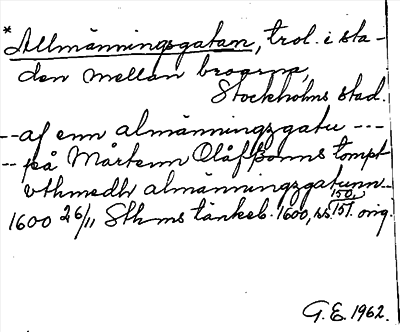 * Allmänningsgatan, trol. i sta-
den mellan broarna,
Stockholms stad.
-- af enn almänningzgatu ---
-- på Mårtenn Olåfßonns tompt
vthmedh almänningzgatunn --
1600 26/11 Sthms tänkeb. 1600, ss. 150, 151. orig.
G.E. 1962.